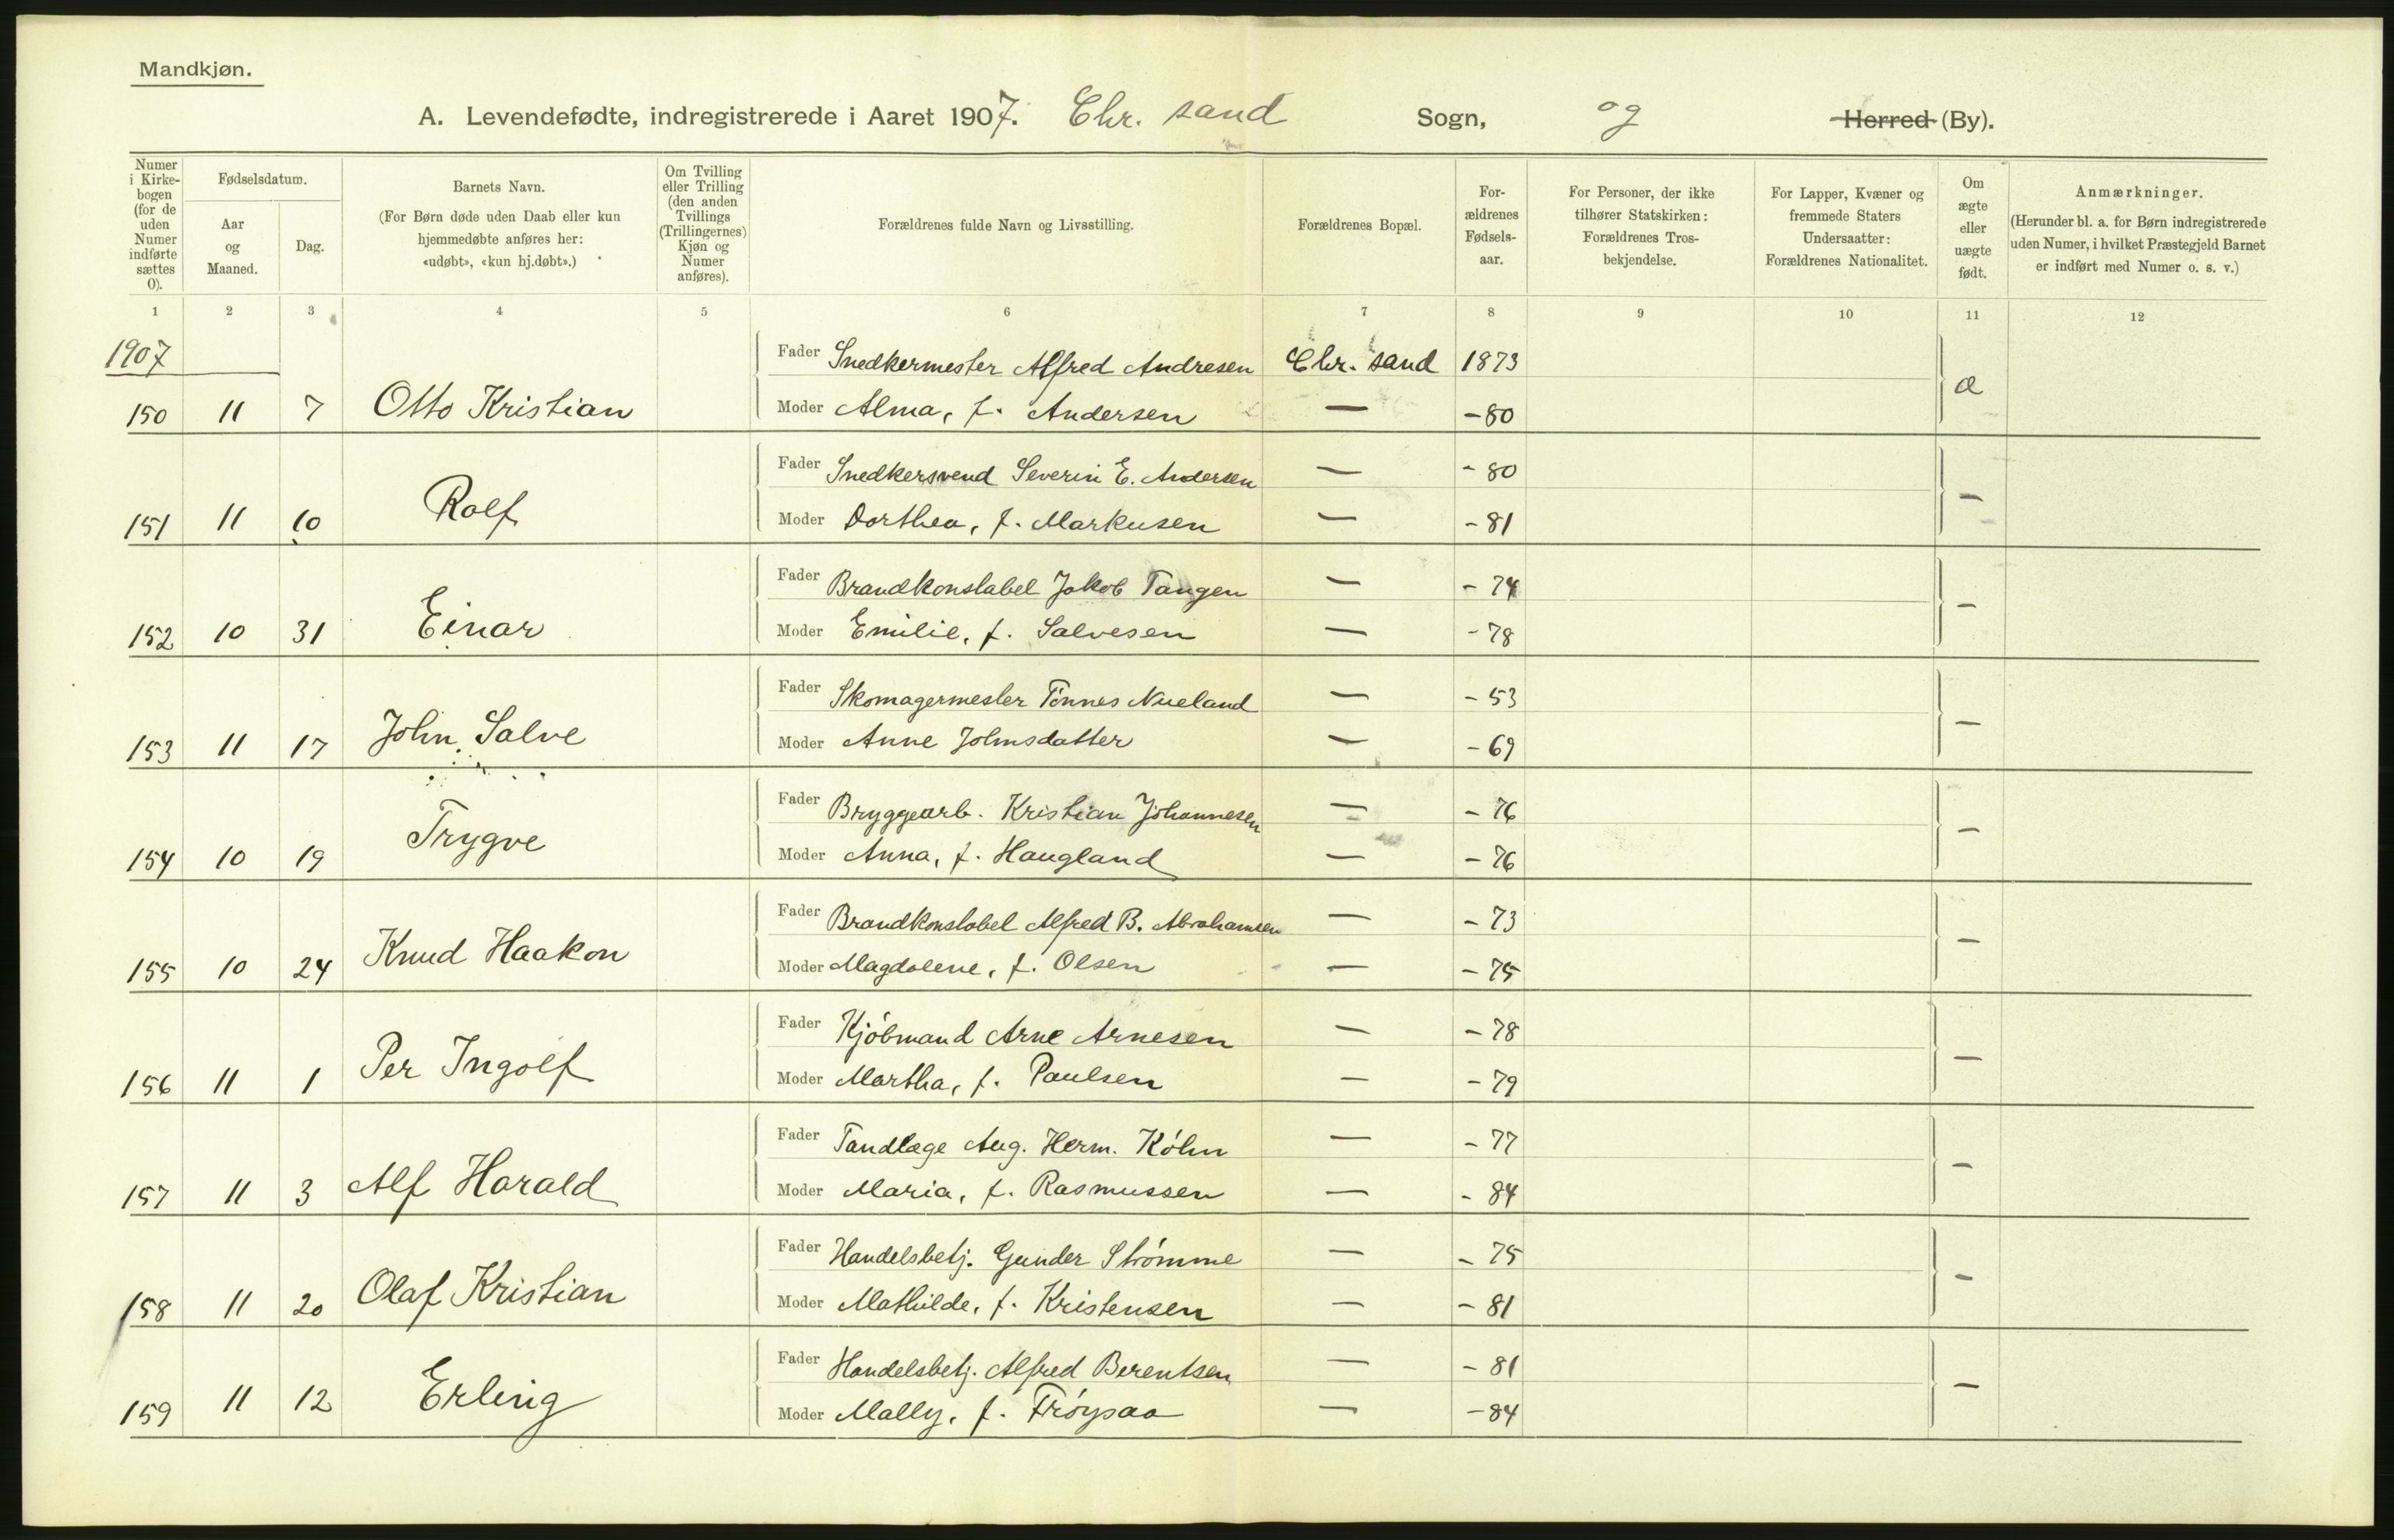 Mandkjøn.
A. Levendefødte, indregistrerede i Aaret 1907. Chr. sand Sogn, og Herred (By).
Numer i Kirkebogen (for de uden Numer indførte sættes 0).
Fødselsdatum.
Aar og Maaned.
Dag.
Barnets Navn.
(For Børn døde uden Daab eller kun hjemmedøbte anføres her: «udøbt», «kun hj.døbt».)
Om Tvilling eller Trilling (den anden Tvillings (Trillingernes) Kjøn og Numer anføres).
Forældrenes fulde Navn og Livsstilling.
Forældrenes Bopæl.
Forældrenes Fødselsaar.
For Personer, der ikke tilhører Statskirken: Forældrenes Trosbekjendelse.
For Lapper, Kvæner og fremmede Staters Undersaatter: Forældrenes Nationalitet.
Om ægte eller uægte født.
Anmærkninger.
(Herunder bl. a. for Børn indregistrerede uden Numer, i hvilket Præstegjeld Barnet er indført med Numer o. s. v.)
1 2 3 4 5 6 7 8 9 10 11 12
1907
Fader Snedkermester Alfred Andresen Chr. sand 1873 æ
150 11 7 Otto Kristian Moder Alma, f. Andersen — -80
Fader Snedkersvend Severin E. Andersen — -80 —
151 11 10 Rolf Moder Dorthea, f. Markusen — -81
Fader Brandkonstabel Jakob Tangen — -74 —
152 10 31 Einar Moder Emilie, f. Salvesen — -78
Fader Skomagermester Tönnes Nueland — -53 —
153 11 17 John Salve Moder Anne Johnsdatter — -69
Fader Bryggearb. Kristian Johannesen — -76 —
154 10 19 Trygve Moder Anna, f. Haugland — -76
Fader Brandkonstabel Alfred B. Abrahamsen — -73 —
155 10 24 Knud Haakon Moder Magdalene, f. Olsen — -75
Fader Kjöbmand Arne Arnesen — -78 —
156 11 1 Per Ingolf Moder Martha, f. Paulsen — -79
Fader Tandlæge Aug. Herm. Köhn — -77 —
157 11 3 Alf Harald Moder Maria, f. Rasmussen — -84
Fader Handelsbetj. Gunder Strömme — -75 —
158 11 20 Olaf Kristian Moder Mathilde, f. Kristensen — -81
Fader Handelsbetj. Alfred Berentsen — -81 —
159 11 12 Erling Moder Mally, f. Fröysaa — -84